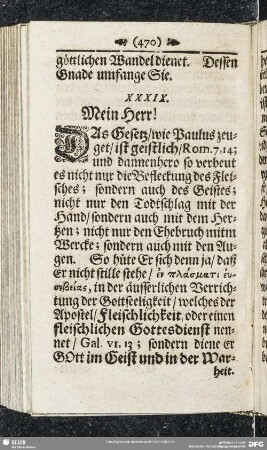 (470)
göttlichen Wandel dienet. Dessen
Gnade umfange Sie.
XXXIX.
Mein Herr!
DAs Gesetz/wie Paulus zeu-
get/ist geistlich/Rom.7.14;
und dannenhero so verbeut
es nicht nur die Befleckung des Flei-
sches; sondern auch des Geistes;
nicht nur den Todtschlag mit der
Hand/sondern auch mit dem Her-
tzen; nicht nur den Ehebruch mitm
Wercke; sondern auch mit den Au-
gen. So hüte Er sich denn ja/daß
Er nicht stille stehe/ ἐν πλάσματι ἐυ-
σεβείας, in der äusserlichen Verrich-
tung der Gottseeligkeit/welches der
Apostel/Fleischlichkeit, oder einen
fleischlichen Gottesdienst nen-
net/ Gal. VI. 13; sondern diene er
GOtt im Geist und in der War-
heit.
SLUB